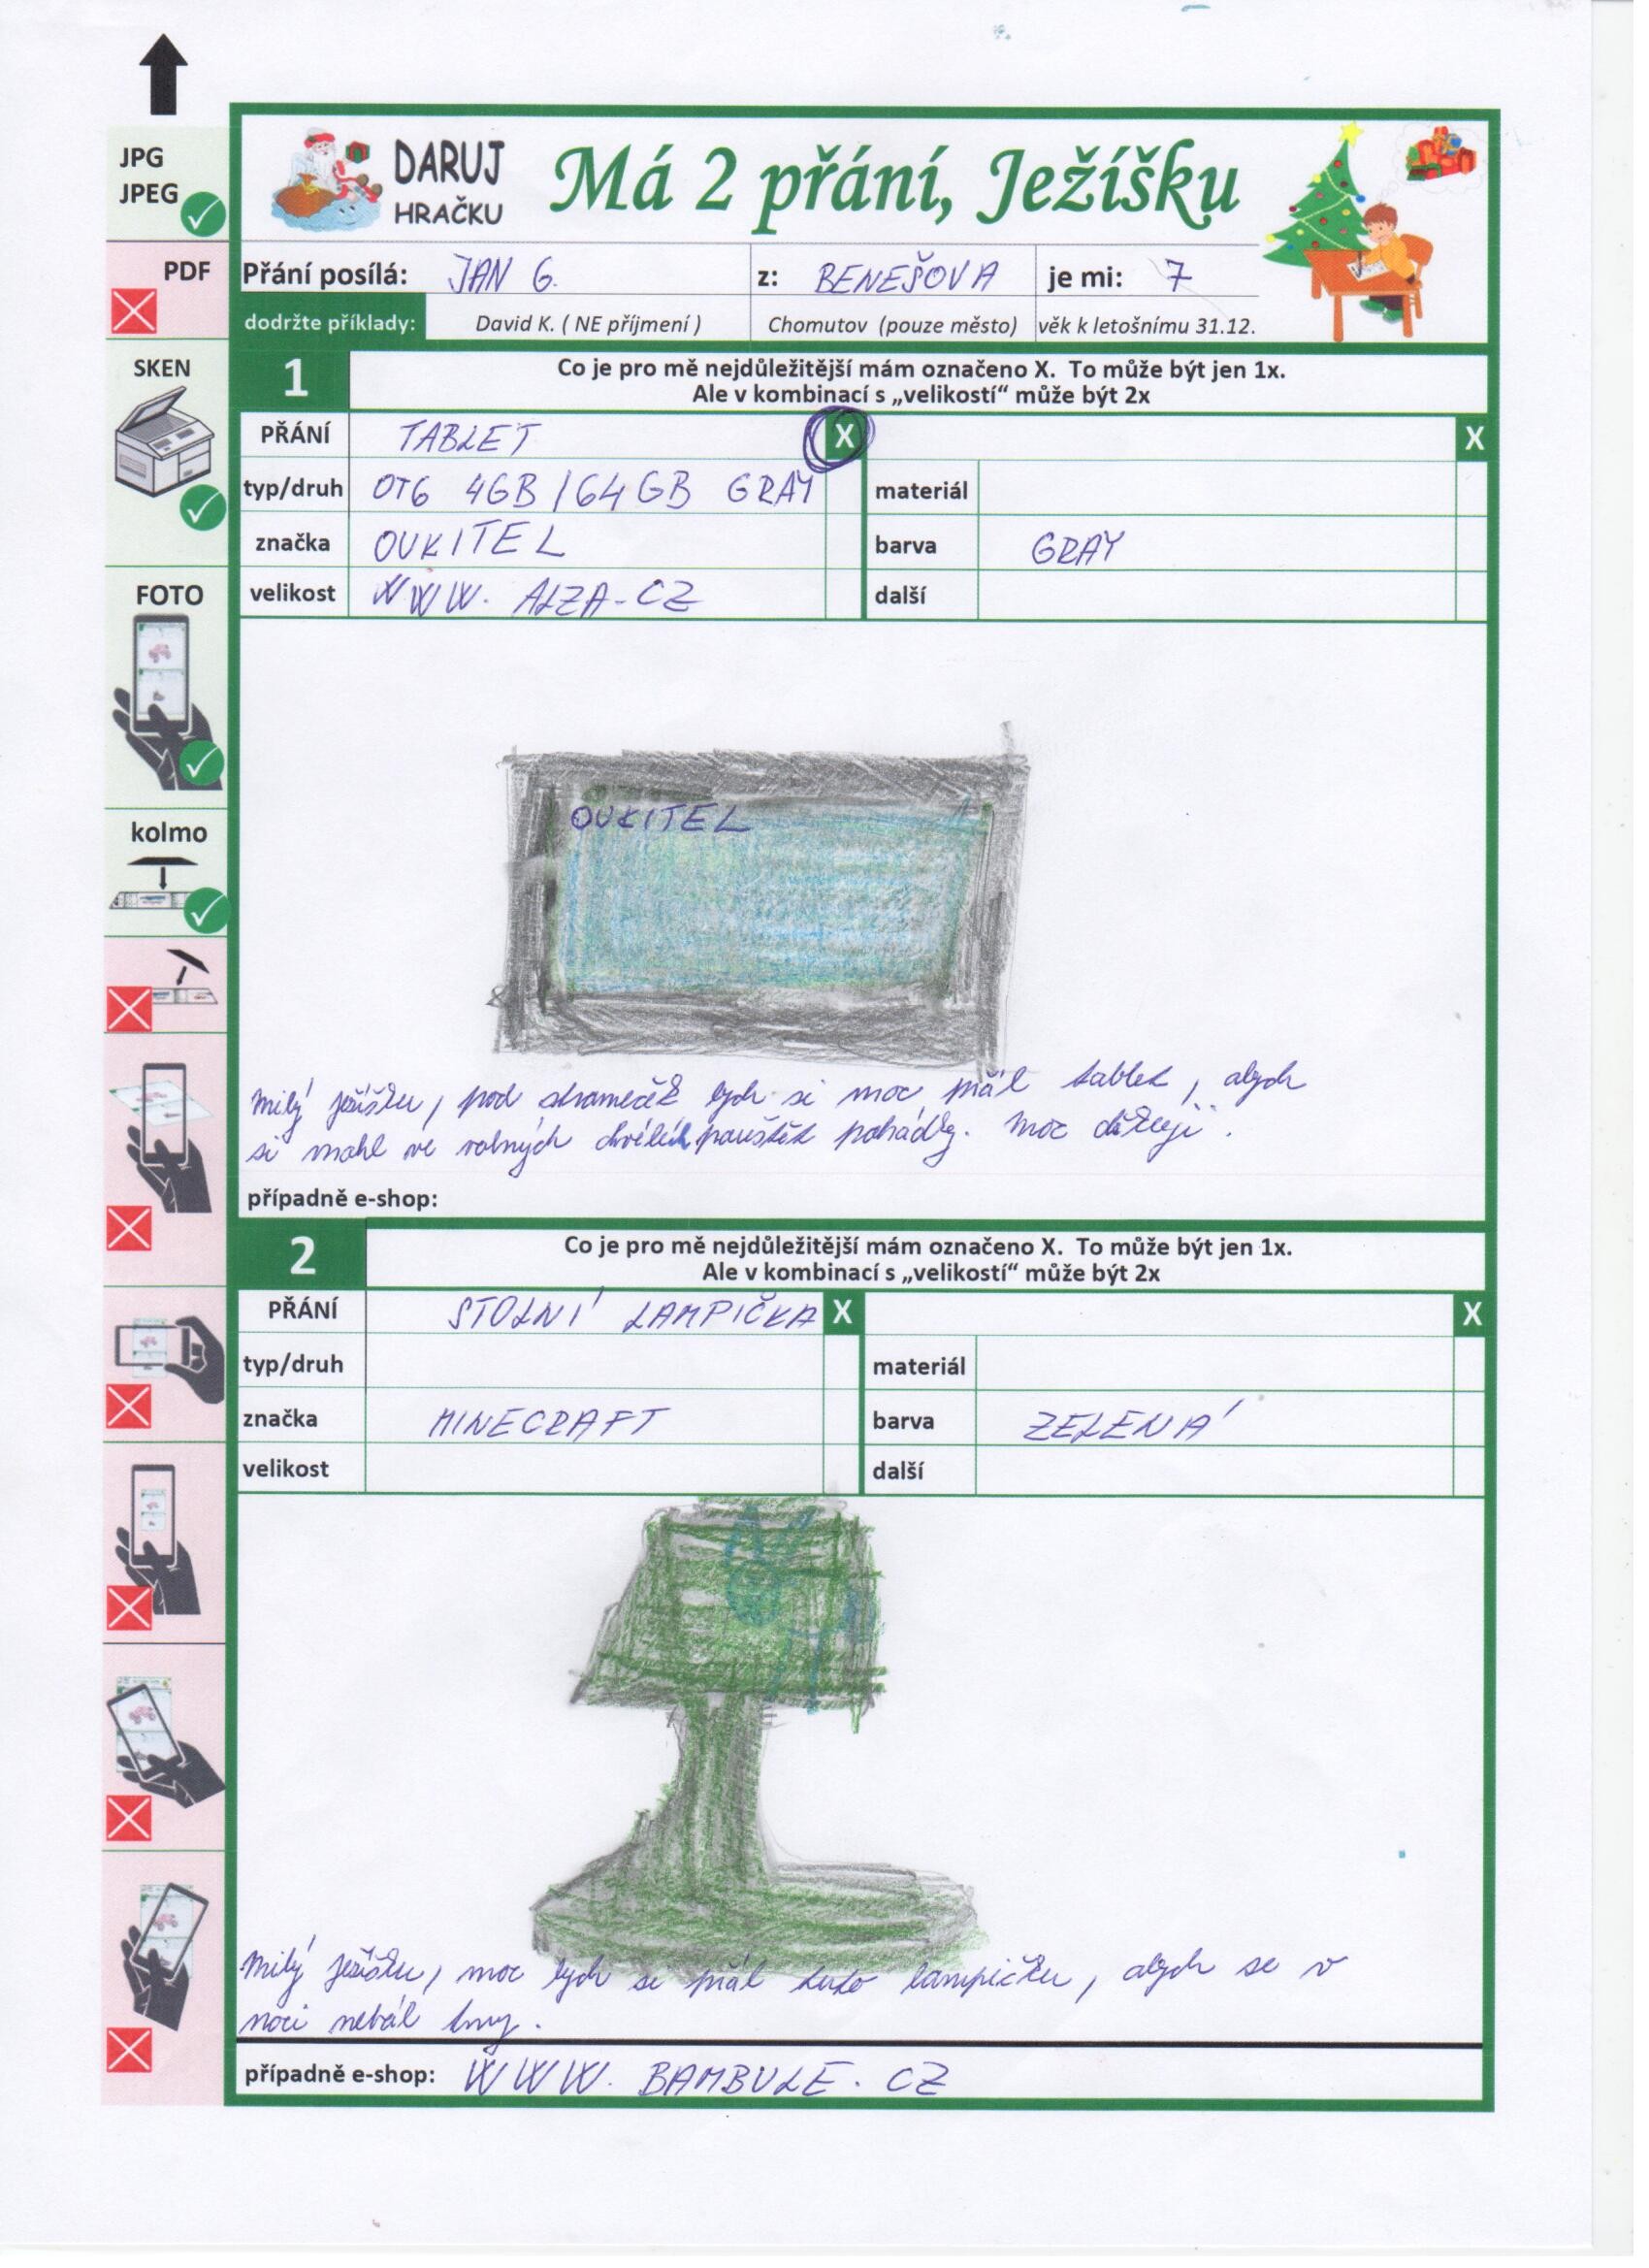 JPG
JPEG
PDF
SKEN
FOTO
kolmo
DARUJ
HRAČKU
Má 2 přání, Ježíšku
Přání posílá: JAN G. z: BENEŠOVA je mi: 7
dodržte příklady: David K. ( NE příjmení ) Chomutov (pouze město) věk k letošnímu 31.12.
1 Co je pro mě nejdůležitější mám označeno X. To může být jen 1x.
Ale v kombinací s „velikostí“ může být 2x
PŘÁNÍ TABLET X X
typ/druh OT6 4GB/64GB GRAY materiál
značka OUKITEL barva GRAY
velikost WWW. ALZA-CZ další
OUKITEL
Milý ježíšku, pod stromeček bych si moc přál tablet, abych
si mohl ve volných chvílích pouštět pohádky. Moc děkuji.
případně e-shop:
2 Co je pro mě nejdůležitější mám označeno X. To může být jen 1x.
Ale v kombinací s „velikostí“ může být 2x
PŘÁNÍ STOLNÍ LAMPIČKA X X
typ/druh materiál
značka MINECRAFT barva ZELENÁ
velikost další
Milý ježíšku, moc bych si přál tuto lampičku, abych se v
noci nebál tmy.
případně e-shop: WWW. BAMBULE. CZ